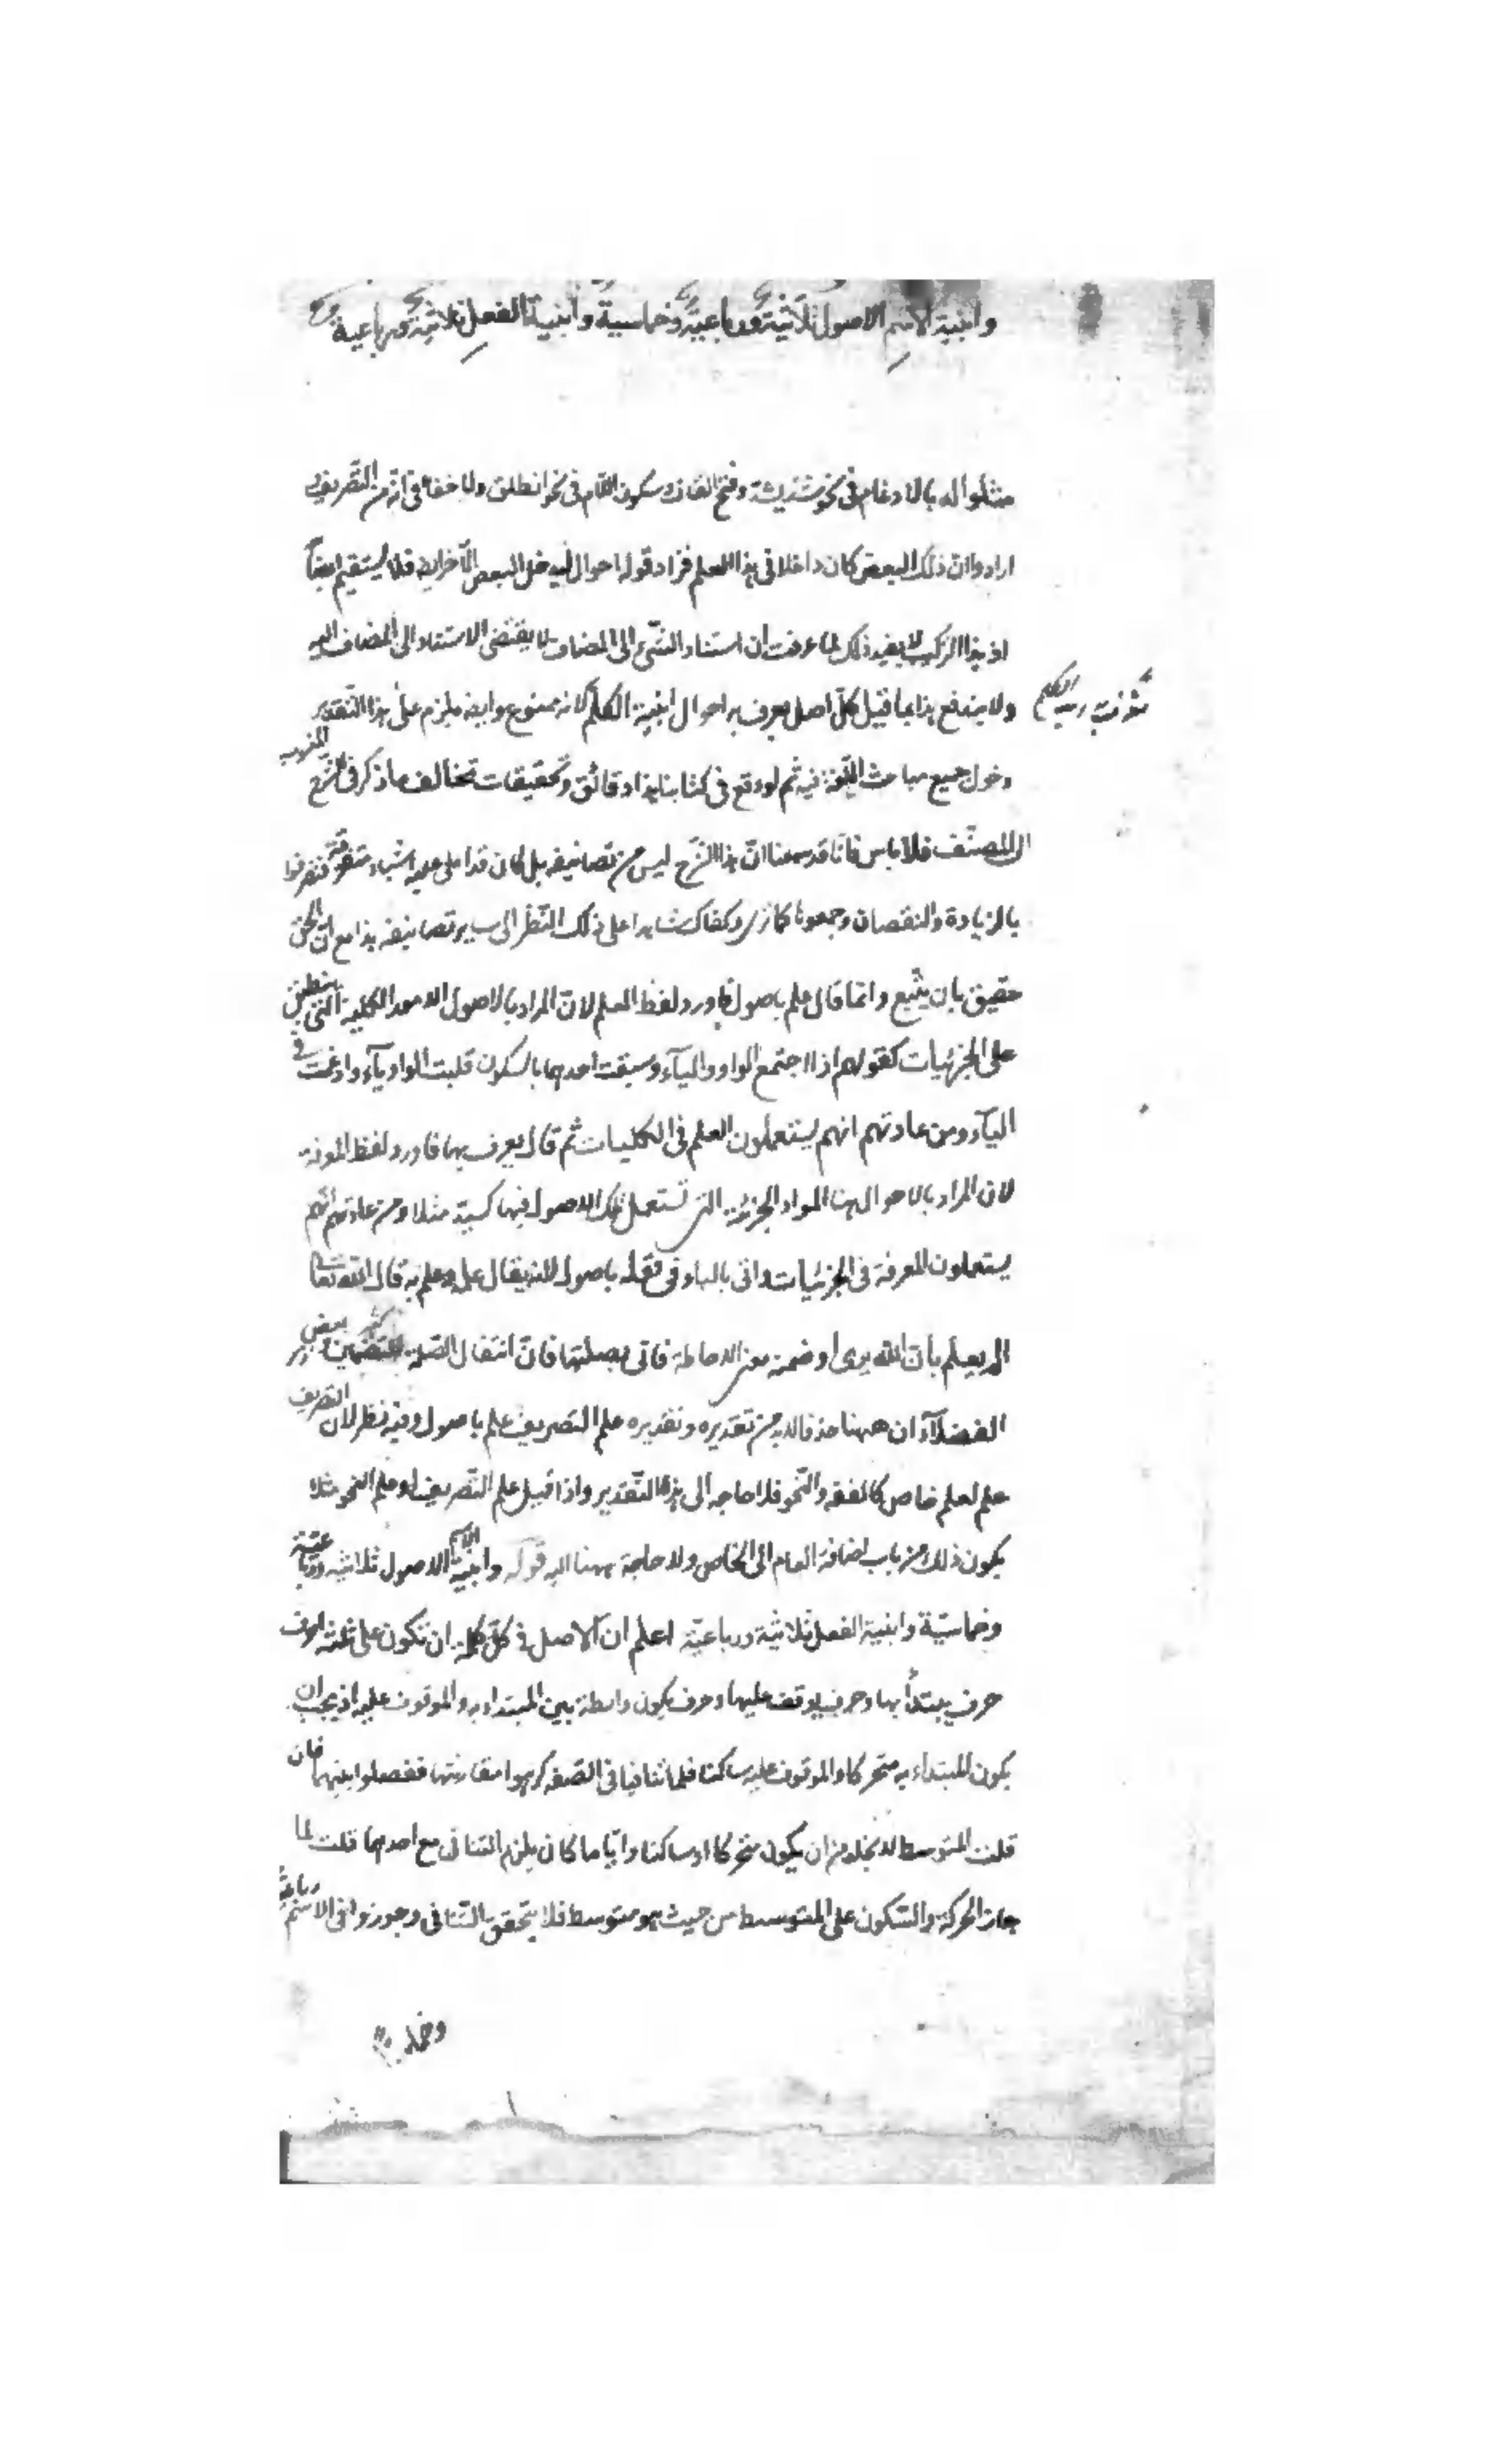 وابنية الاسم الاصول ثلاثية ورباعية وخماسية وابنية الفعل ثلاثية ورباعية
مثلوا له بالادغام في نحو شد يشد وفتح القاف وسكون اللام في نحو انطلق ولا خفاء في انه من التصريف
ارادوا ان ذلك البعض كان داخلا في هذا العلم فزاد قوله احوال ليدخل البعض الآخر فيه فلا يستقيم ايضا
اذ هذا التركيب لا يفيد ذلك لما عرفت ان استناد الشيء الى المضاف لا يقتضى الاستناد الى المضاف اليه
ولا يندفع هذا بما قيل كل اصل يعرف به احوال ابنية الكلم لانه ممنوع وايضا يلزم على هذا التقدير
دخول جميع مباحث اللغة فيه ثم لو وقع في كتابنا هذا دقائق وتحقيقات تخالف ما ذكر في الشرح المنسوب
الى المصنف فلا باس فانا قد سمعنا ان هذا الشرح ليس من تصانيفه بل كان قد املى عليه اشياء متفرقة فتصرفوا
بالزيادة والنقصان وجمعوها كما ترى وكفاك شاهدا على ذلك النظر الى ساير تصانيفه هذا مع ان الحق
حقيق بان يتبع وانما قال علم باصول فاورد لفظ العلم لان المراد بالاصول الامور الكلية التى ينطبق
على الجزئيات كقولهم اذا اجتمع الواو والياء وسبقت احديهما بالسكون قلبت الواو ياء وادغمت في
الياء ومن عادتهم انهم يستعملون العلم في الكليات ثم قال يعرف بها فاورد لفظ المعرفة
لان المراد بالاحوال هنا المواد الجزئية التى تستعمل تلك الاصول فيها كسيد مثلا ومن عادتهم انهم
يستعملون المعرفة في الجزئيات واتى بالباء في قوله باصول لانه يقال علمه وعلم به قال الله تعالى
الم يعلم بأن الله يرى او ضمنه معنى الاحاطة فاتى بصلتها فان انتقال الصلة للتضمين كثير بعض
الفضلاء ان ههنا حذفا لابد من تقديره وتقديره علم التصريف علم باصول وفيه نظر لان التصريف
علم لعلم خاص كالفقه والنحو فلا حاجة الى هذا التقدير واذا قيل علم التصريف او علم النحو مثلا
يكون ذلك من باب اضافة العام الى الخاص ولا حاجة ههنا اليه قوله وابنية الاسم الاصول ثلاثية ورباعية
وخماسية وابنية الفعل ثلاثية ورباعية اعلم ان الاصل في كل كلمة ان تكون على ثلثة احرف
حرف يبتدأ بها وحرف يوقف عليها وحرف يكون واسطة بين المبتداء به والموقوف عليه اذ يجب ان
يكون المبتداء به متحركا والموقوف عليه ساكنا فلما تنافيا في الصفة كرهوا مقارنتهما ففصلوا بينهما فان
قلت المتوسط لا يخلو من ان يكون متحركا او ساكنا وايا ما كان يلزم التنافى مع احدهما قلت لما
جاز الحركة والسكون على المتوسط من حيث هو متوسط فلا يتحقق التنافى وجوزوا في الاسم رباعيا